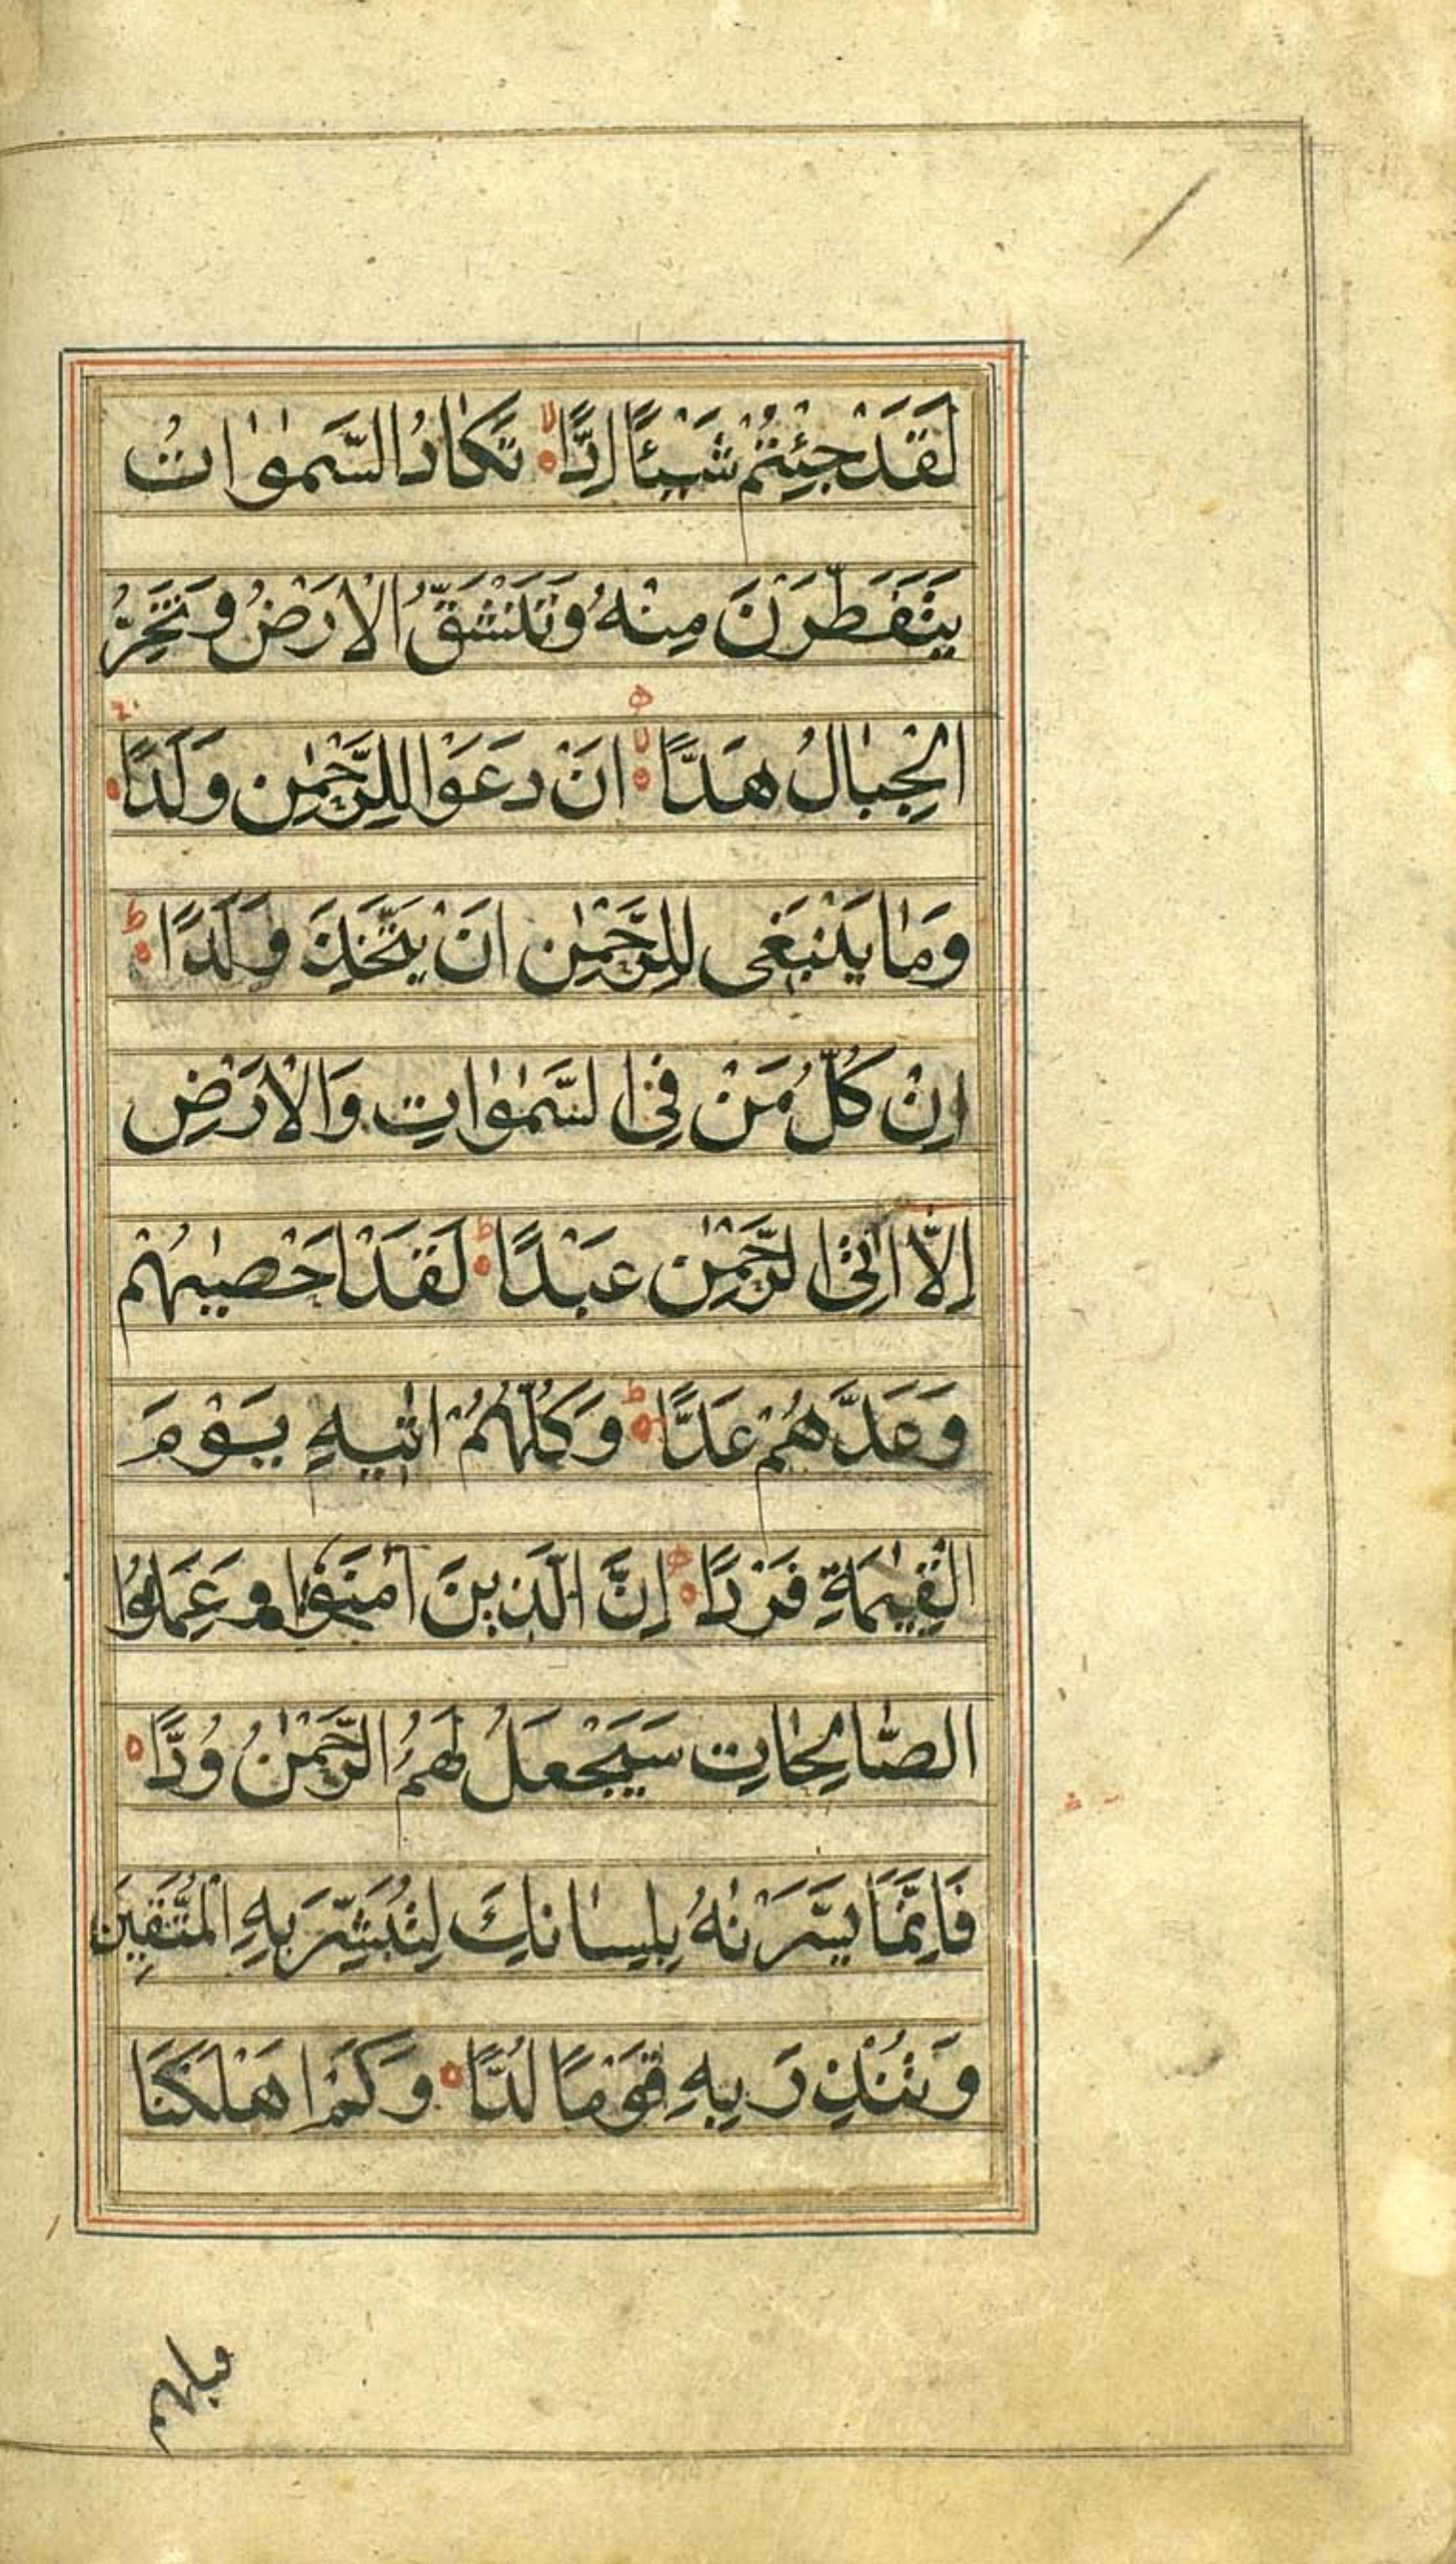 لَقَدْ جِئْتُمْ شَيْئًا اِدًّا ۙ تَكَادُ السَّمٰوٰاتُ
يَتَفَطَّرْنَ مِنْهُ وَتَنْشَقُّ الْاَرْضُ وَتَخِرُّ
الْجِبَالُ هَدًّا ۙ اَنْ دَعَوْا لِلرَّحْمٰنِ وَلَدًا
وَمَا يَنْبَغِى لِلرَّحْمٰنِ اَنْ يَتَّخِذَ وَلَدًا ؕ
اِنْ كُلُّ مَنْ فِى السَّمٰوٰاتِ وَالْاَرْضِ
اِلَّا اٰتِى الرَّحْمٰنِ عَبْدًا ؕ لَقَدْ اَحْصٰيهُمْ
وَعَدَّهُمْ عَدًّا ؕ وَكُلُّهُمْ اٰتِيهِ يَوْمَ
الْقِيٰمَةِ فَرْدًا اِنَّ الَّذِينَ اٰمَنُوا وَعَمِلُوا
الصَّالِحَاتِ سَيَجْعَلُ لَهُمُ الرَّحْمٰنُ وُدًّا
فَاِنَّمَا يَسَّرْنٰهُ بِلِسَانِكَ لِتُبَشِّرَ بِهِ الْمُتَّقِينَ
وَتُنْذِرَ بِهِ قَوْمًا لُدًّا وَكَمْ اَهْلَكْنَا
قبلهم